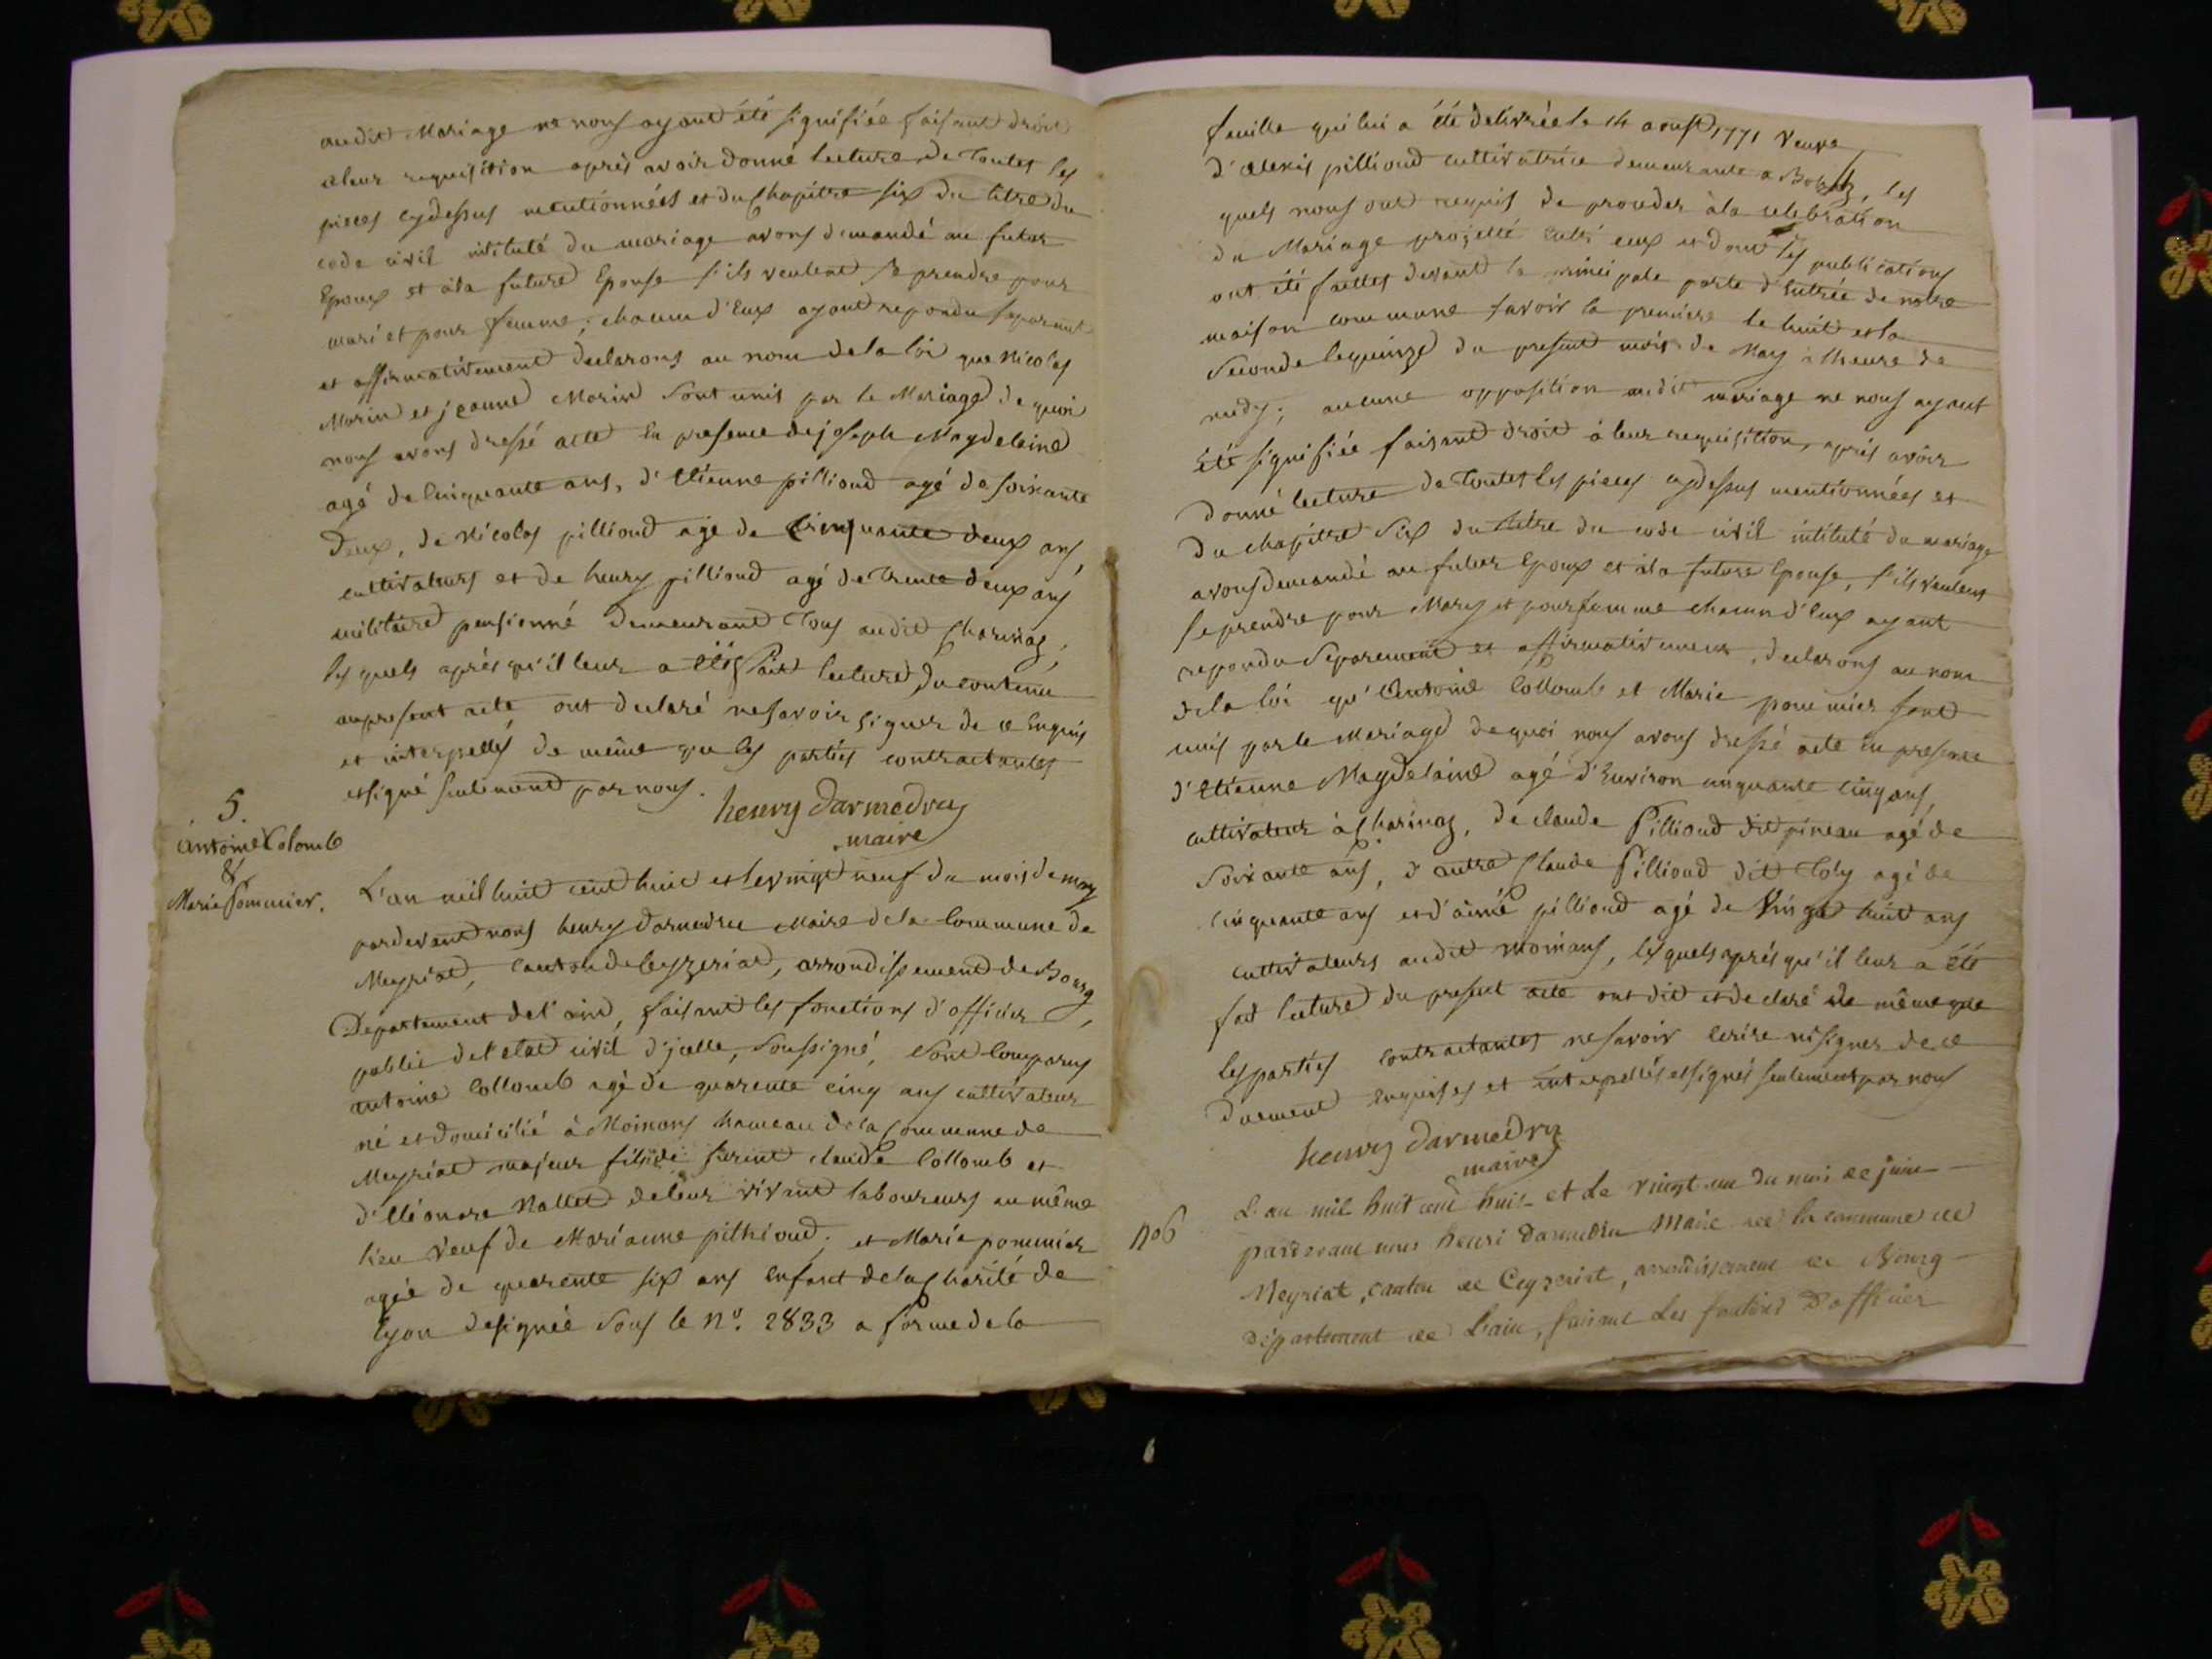 audit Mariage ne nous ayant été signifiée faisant droit
a leur requisition après avoir donné lecture de Toutes les
pieces cydessus mentionnées et du chapitre six du titre du
code civil intitulé du mariage avons demandé au futur
Epoux et à la future Epouse s'ils veulent se prendre pour
mari et pour femme, chacun d'Eux ayant repondu separemt
et affirmativement declarons au nom de la loi que Nicolas
Morin et jeanne Morin sont unis par le Mariage de quoi
nous avons dressé acte en presence de joseph Magdelaine
agé de Cinquante ans, d'Etienne pilliond agé de soixante
Deux, de Nicolas pilliond agé de Cinquante deux ans,
cultivateurs et de henry pilliond agé de Trente deux ans
militaire pensionné demeurant Tous audit Charinaz,
les quels après qu'il leur a été fait lecture du contenu
au present acte ont declaré ne savoir signer de ce Enquis
et interpellés de même que les parties contractantes
et signé seulement par nous.
henry darmedru
maire
5.
Antoine Colomb
&
Marie Pommier.
L'an mil huit cent huit et le vingt neuf du mois de may
pardevant nous henry Darmedru Maire de la Commune de
Meyriat, Canton de Ceyzeriat, arrondissement de Bourg,
Departement de l'ain, faisant les fonctions d'officier
public de l'etat civil d'jcelle, soussigné, sont Comparus
antoine Collomb agé de quarente cinq ans cultivateur
né et domicilié à Moinans hameau de la Commune de
Meyriat majeur fils de deffunt claude Collomb et
d'Eléonore Nallet de leur vivant laboureurs au même
lieu veuf de Marianne pilliond; et Marie pommier
agée de quarente six ans Enfant de la Charité de
Lyon designée sous le N°. 2833 a forme de la
feuille qui lui a été delivrée le 14 aoust 1771 Veuve
d'alexis pilliond cultivatrice demeurante a, les
quels nous ont requis de proceder à la celebration
du Mariage projetté entr'eux et dont les publications
ont été faittes devant la principale porte d'Entrée de notre
maison commune savoir la premiere le huit et la
Seconde le quinze du present mois de May à lheure de
midy; aucune opposition audit mariage ne nous ayant
été signifiée faisant droit à leur requisition, après avoir
donné lecture de Toutes les pieces cydessus mentionnées et
du chapitre Six du titre du code civil intitulé du mariage
avons demandé au futur Epoux et à la future Epouse, s'ils veulent
se prendre pour Mary et pour femme chacun d'Eux ayant
repondu separement et affirmativement, declarons au nom
de la loi qu'antoine Collomb et Marie pommier sont
unis par le Mariage de quoi nous avons dressé acte en presence
d'Etienne Magdelaine agé d'Environ cinquante cinq ans,
cultivateur à Charinaz, de claude Pilliond dit pineau agé de
Soixante ans, d'autre Claude Pilliond dit Toly agé de
Cinquante ans et d'aimé pilliond agé de Vingt huit ans
cultivateurs audit moinans, lesquels après qu'il leur a été
fait lecture du present acte ont dit et declaré de même que
les parties contractantes ne savoir Ecrire ni signer de ce
duement Enquises et interpellés et signés seulement par nous
henry darmedru
maire
No 6
L'an mil huit cent huit et le vingt un du mois de juin
pardevant nous henri Darmedru Maire de la commune de
Meyriat, canton de Ceyzeriat, arrondissement de Bourg
Département de L'ain, faisant les fonctions D'officier